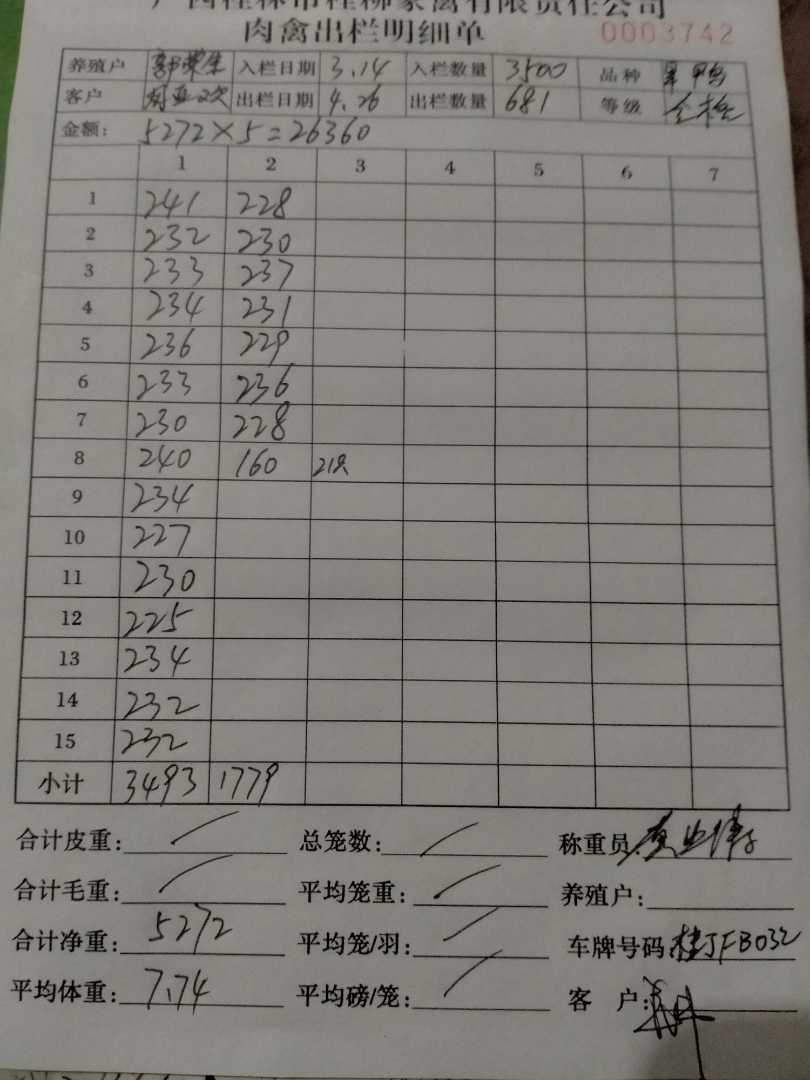 广西桂林市桂柳家禽有限责任公司
肉禽出栏明细单 0003742
养殖户 郭荣生 入栏日期 3.14 入栏数量 3500 品种
客户 出栏日期 4.26 出栏数量 681 等级 全检
金额: 5272×5=26360
1 2 3 4 5 6 7
1 241 228
2 232 230
3 233 237
4 234 231
5 236 229
6 233 236
7 230 228
8 240 160 21只
9 234
10 227
11 230
12 225
13 234
14 232
15 232
小计 3493 1779
合计皮重: 总笼数: 称重员:
合计毛重: 平均笼重: 养殖户:
合计净重: 5272 平均笼/羽: 车牌号码: 桂JFB032
平均体重: 7.74 平均磅/笼: 客 户: